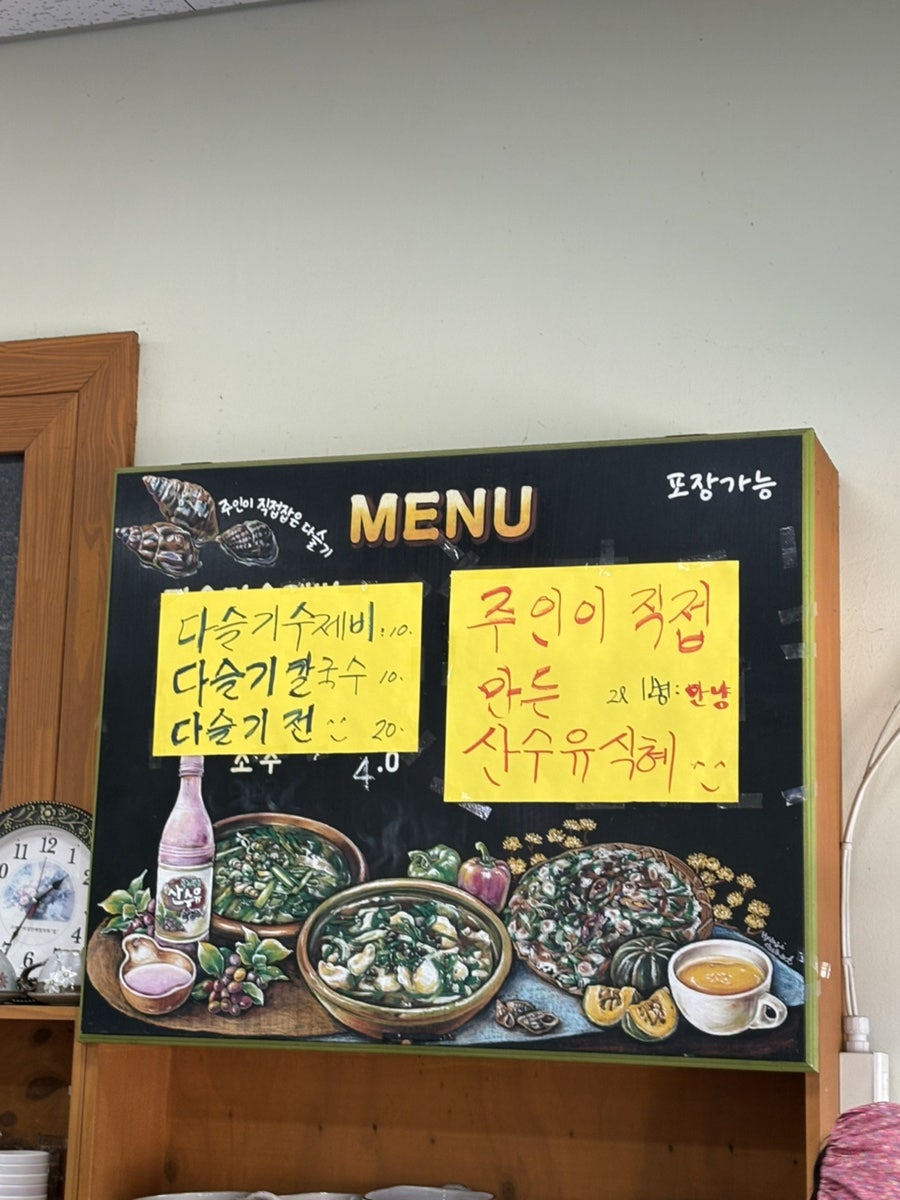 주인이 직접잡은 다슬기
MENU
포장가능
다슬기수제비:10.
다슬기칼국수 10.
다슬기전 20.
소주 4.0
주인이 직접
만든 2L 1병:만냥
산수유식혜
산수유
11 12 1